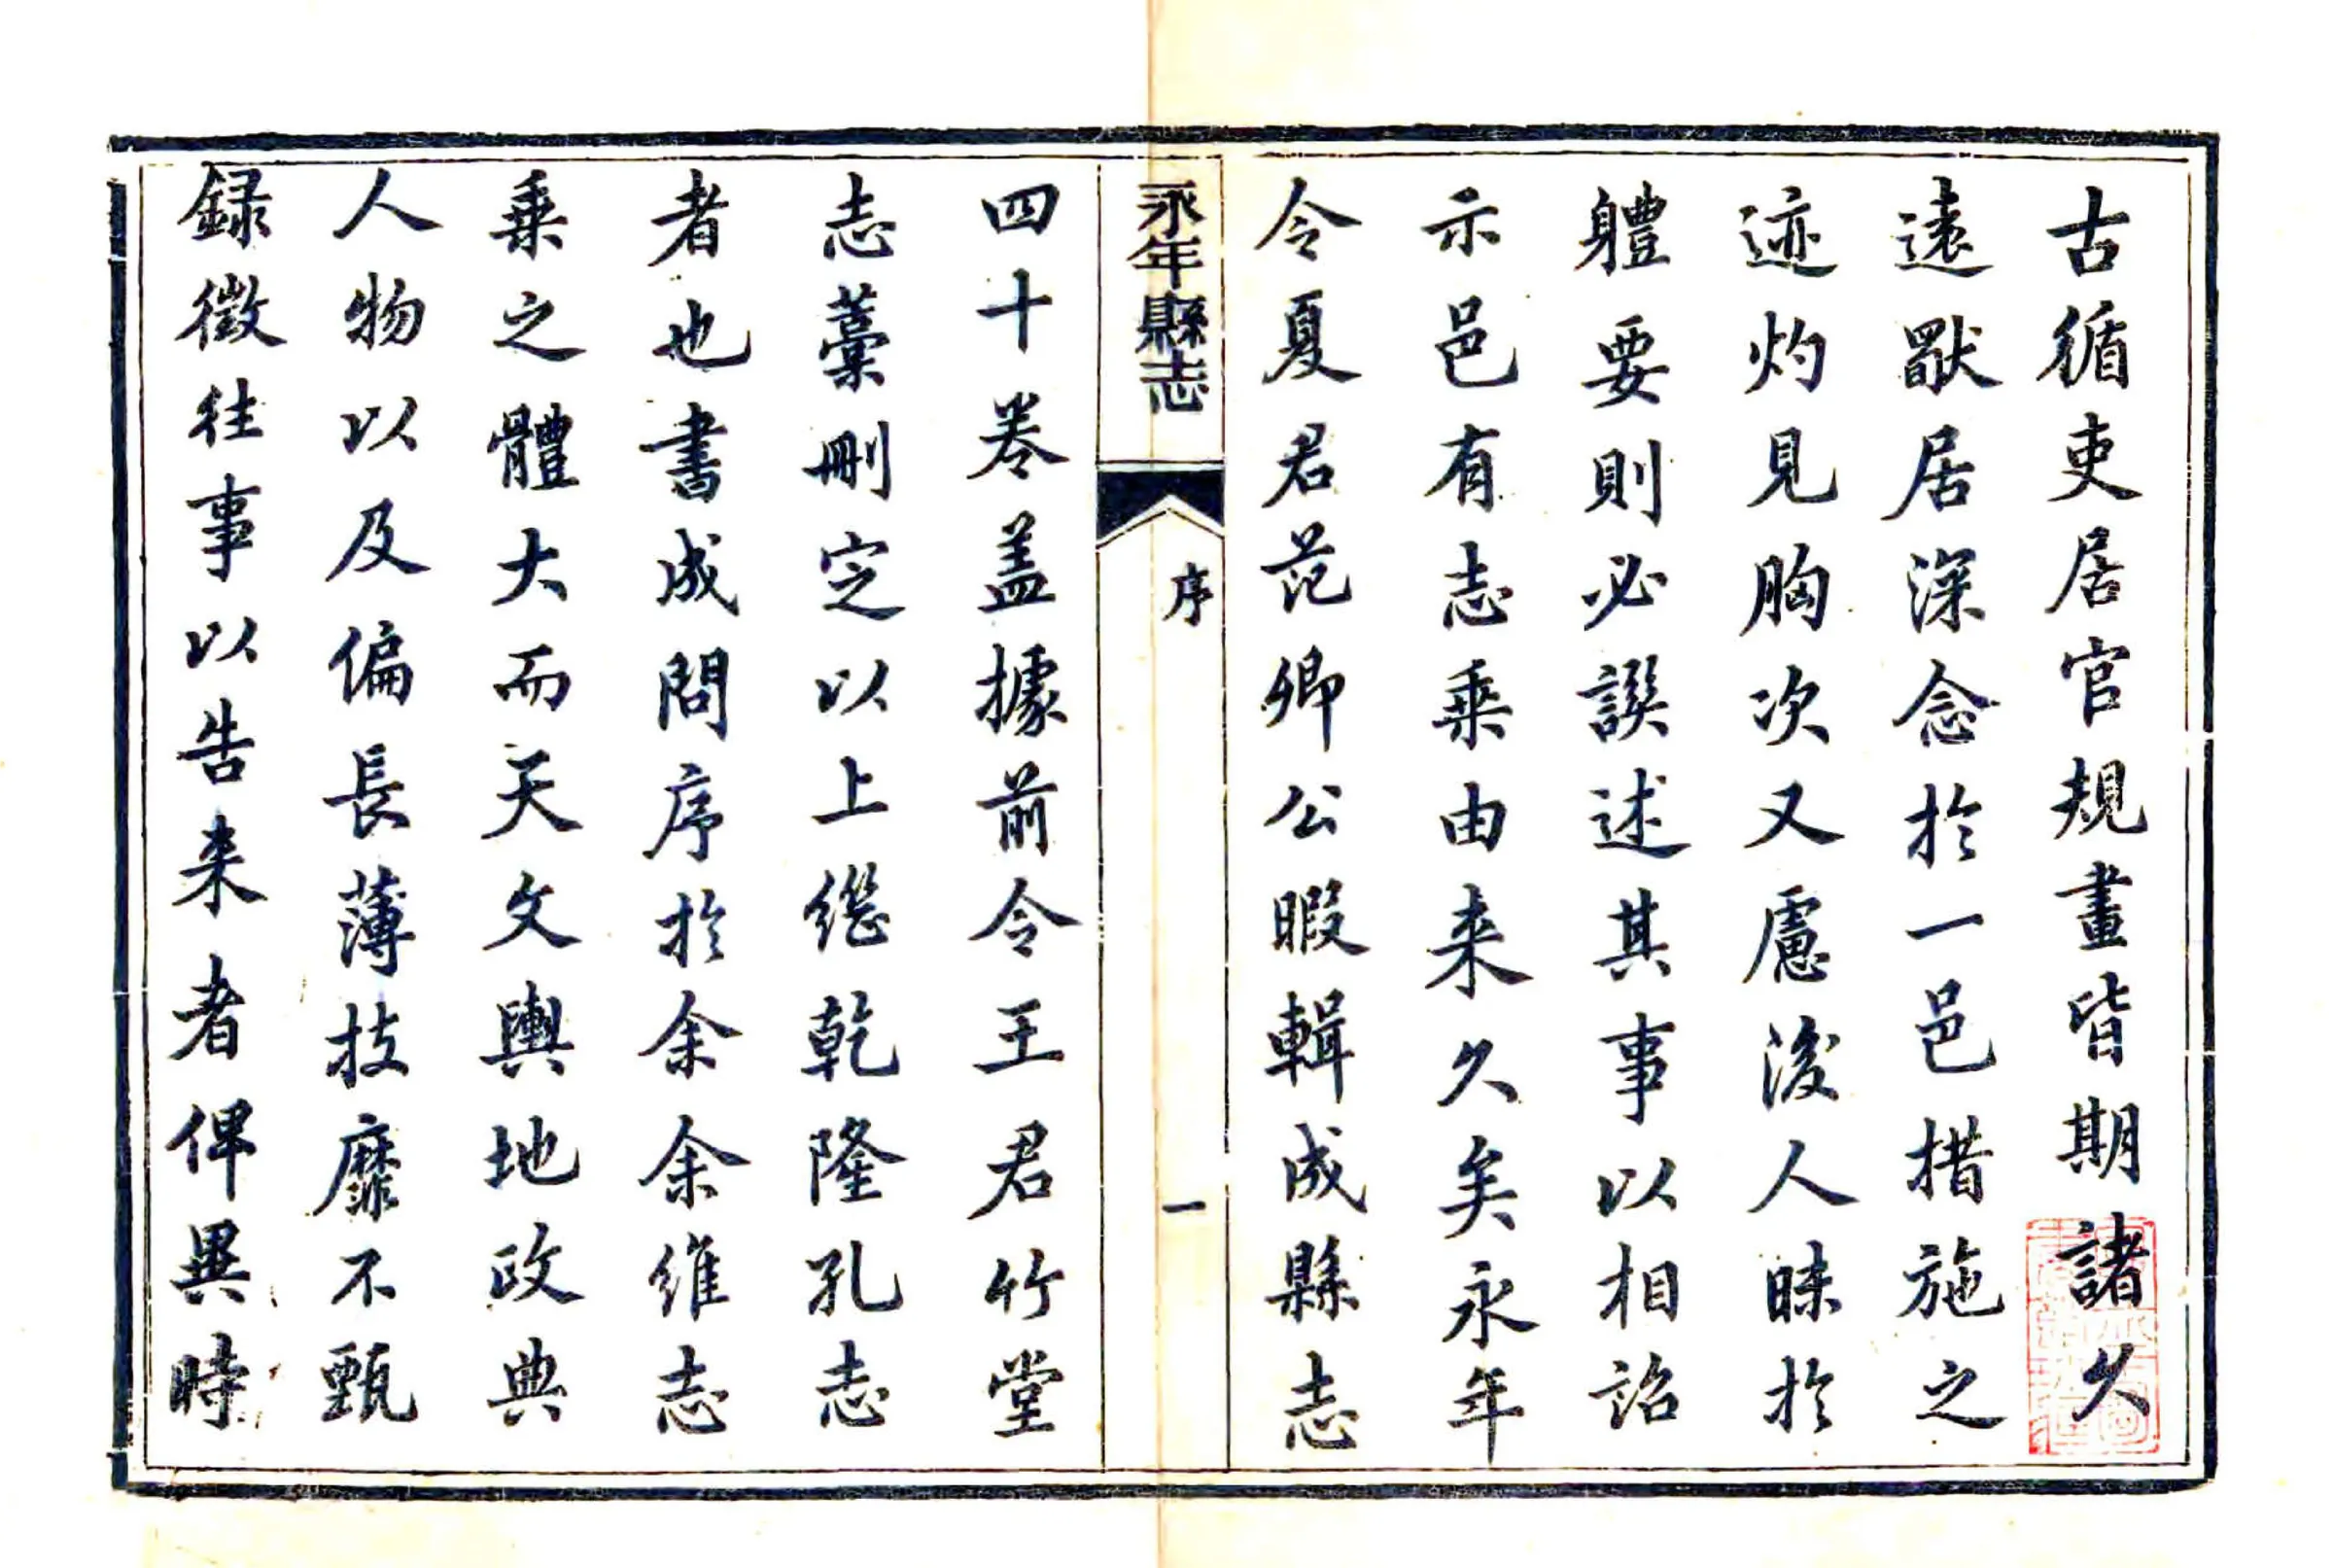 古循吏居官規畫皆期諸久
遠猷居深念於一邑措施之
迹灼見胸次又慮後人昧於
軆要則必譔述其事以相詔
示邑有志乘由来久矣永年
令夏君范卿公暇輯成縣志
永年縣志
序
一
四十卷盖據前令王君竹堂
志藁刪定以上繼乾隆孔志
者也書成問序於余余維志
乘之體大而天文輿地政典
人物以及偏長薄技靡不甄
録徵往事以告来者俾異時